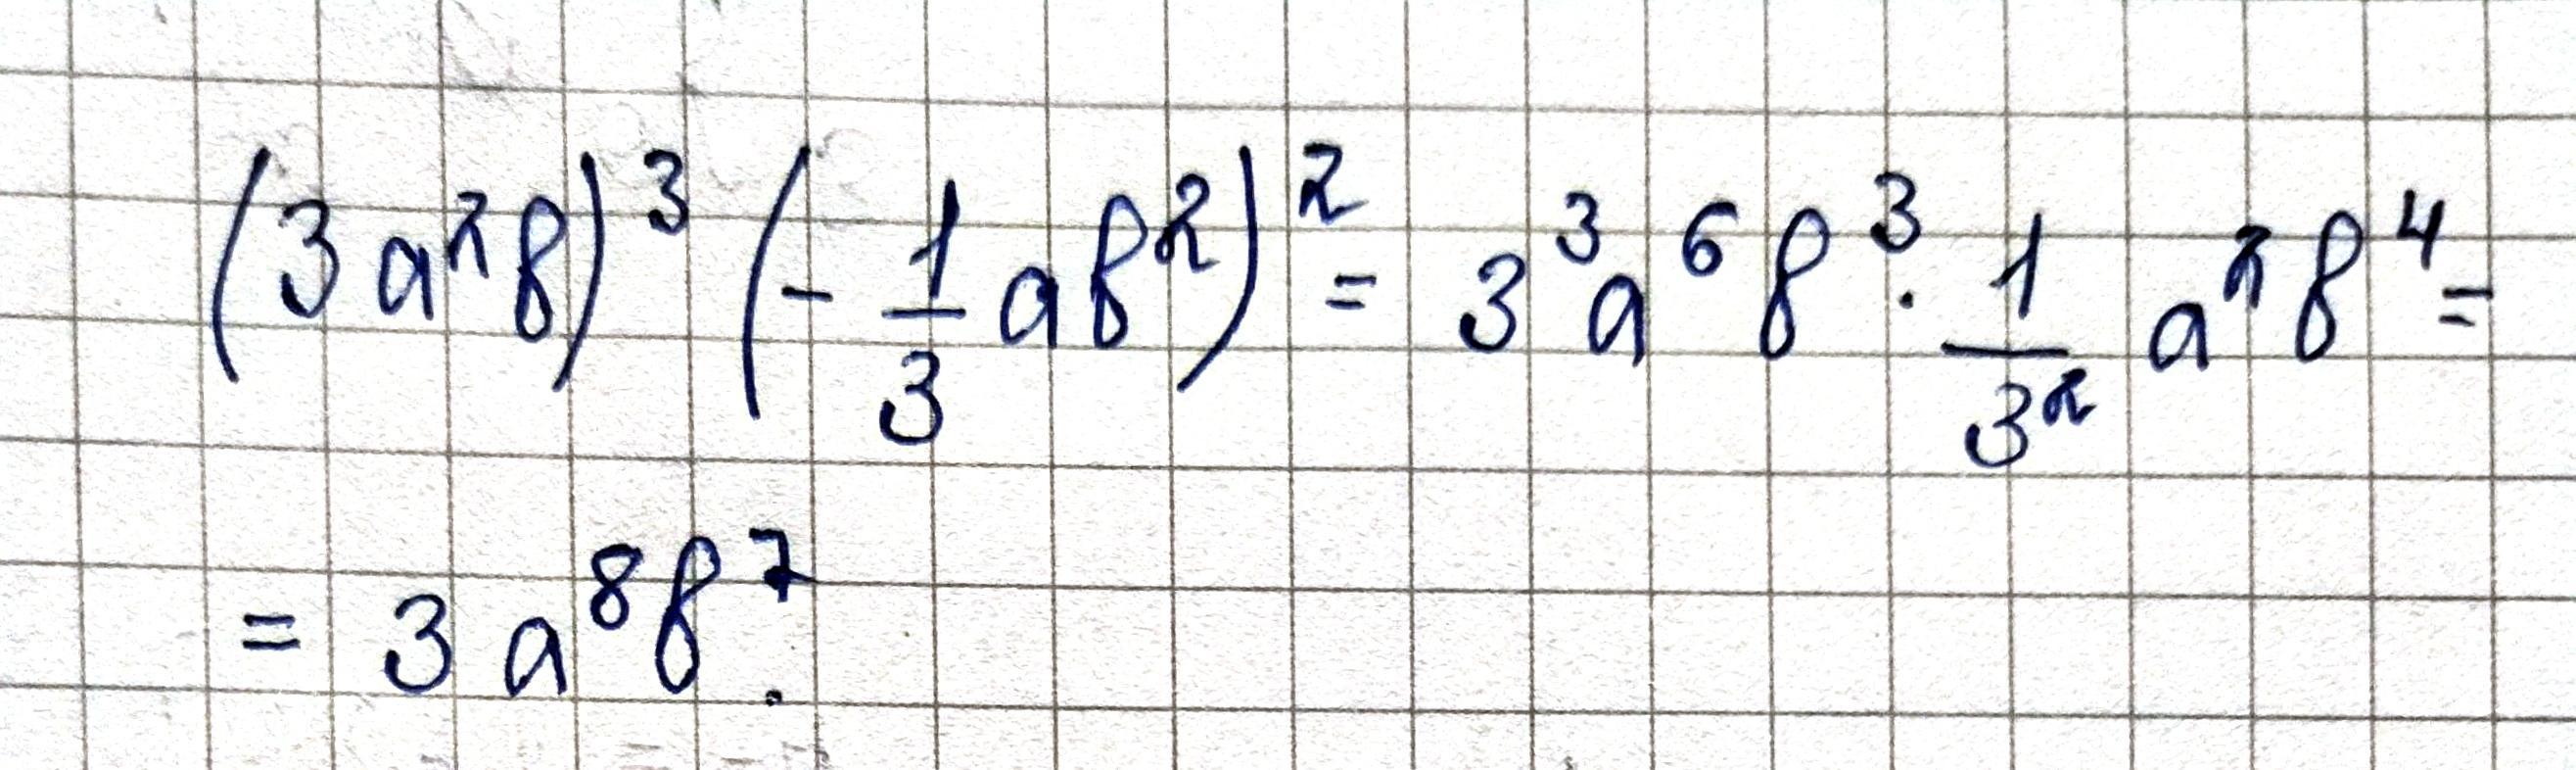 (3a²b)³(-1/3 ab²)² = 3³a⁶b³ · 1/3² a²b⁴ =
= 3a⁸b⁷.